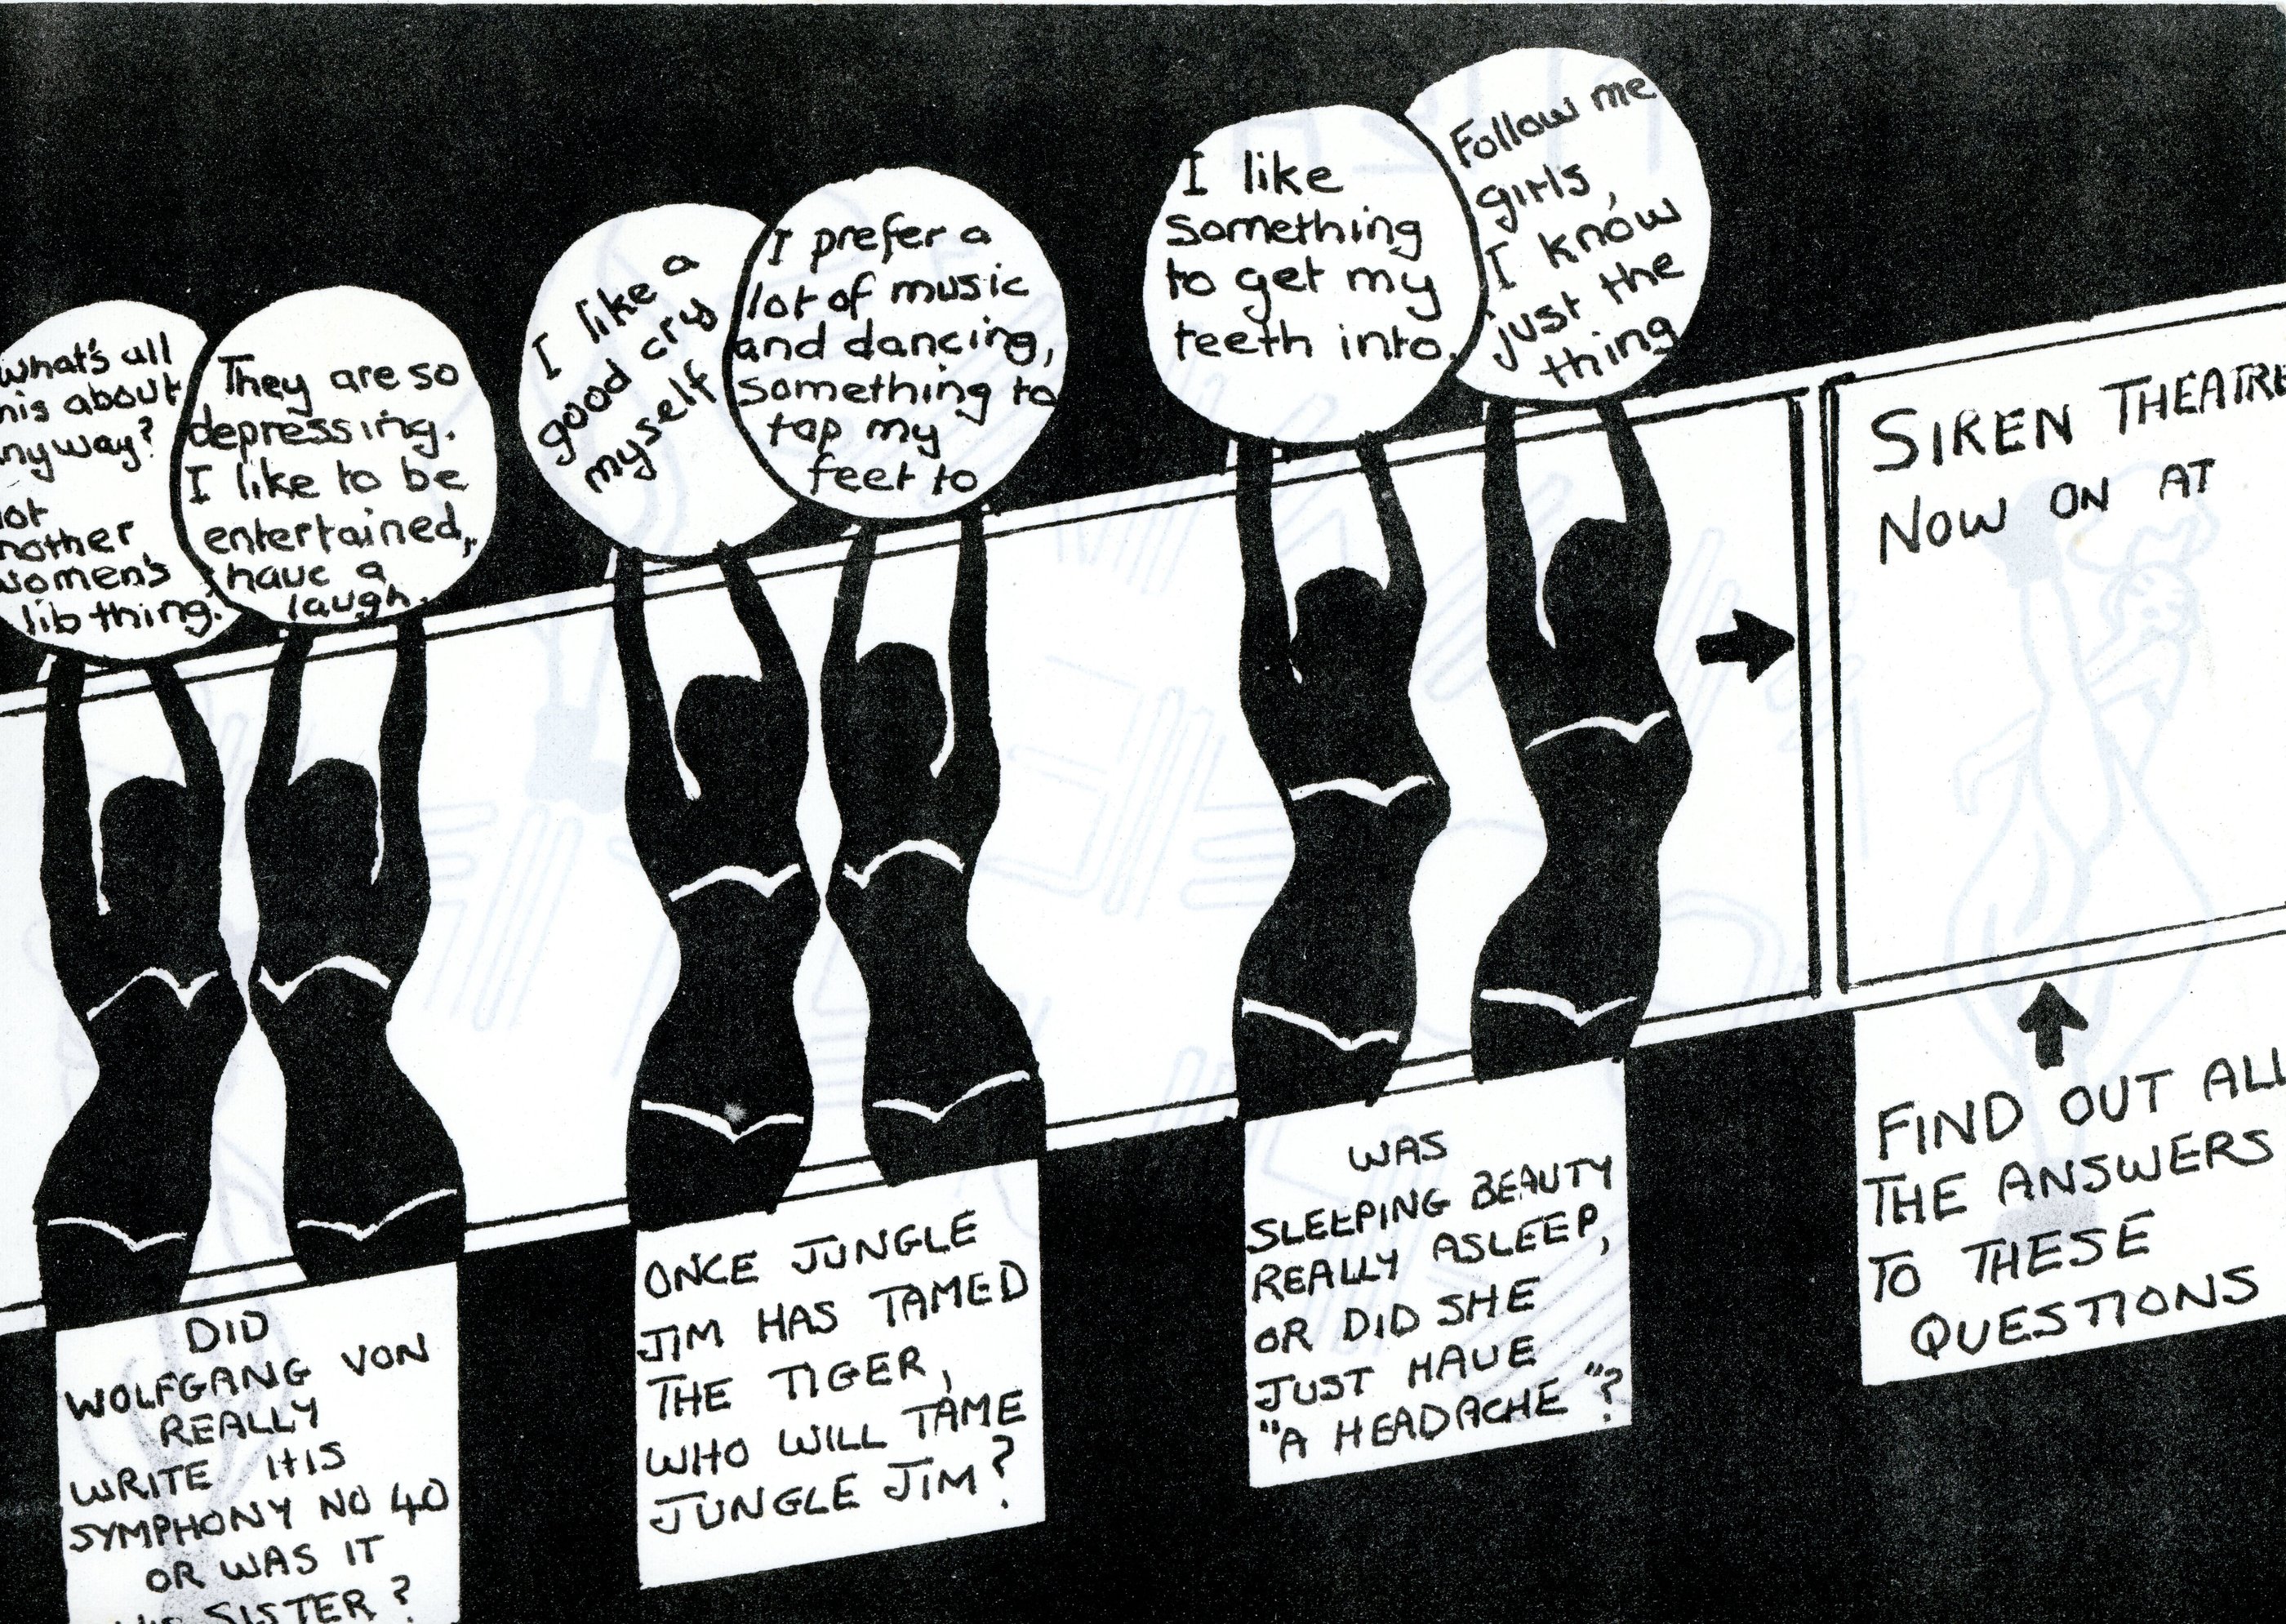 What's all
his about
nyway?
ot
nother
women's
lib thing.
They are so
depressing.
I like to be
entertained,
have a
laugh.
I like a
good cry
myself
I prefer a
lot of music
and dancing,
something to
tap my
feet to
I like
something
to get my
teeth into.
Follow me
girls,
I know
just the
thing
SIREN THEATRE
NOW ON AT
DID
WOLFGANG VON
REALLY
WRITE HIS
SYMPHONY NO 40
OR WAS IT
HIS SISTER?
ONCE JUNGLE
JIM HAS TAMED
THE TIGER,
WHO WILL TAME
JUNGLE JIM?
WAS
SLEEPING BEAUTY
REALLY ASLEEP,
OR DID SHE
JUST HAVE
"A HEADACHE"?
FIND OUT ALL
THE ANSWERS
TO THESE
QUESTIONS